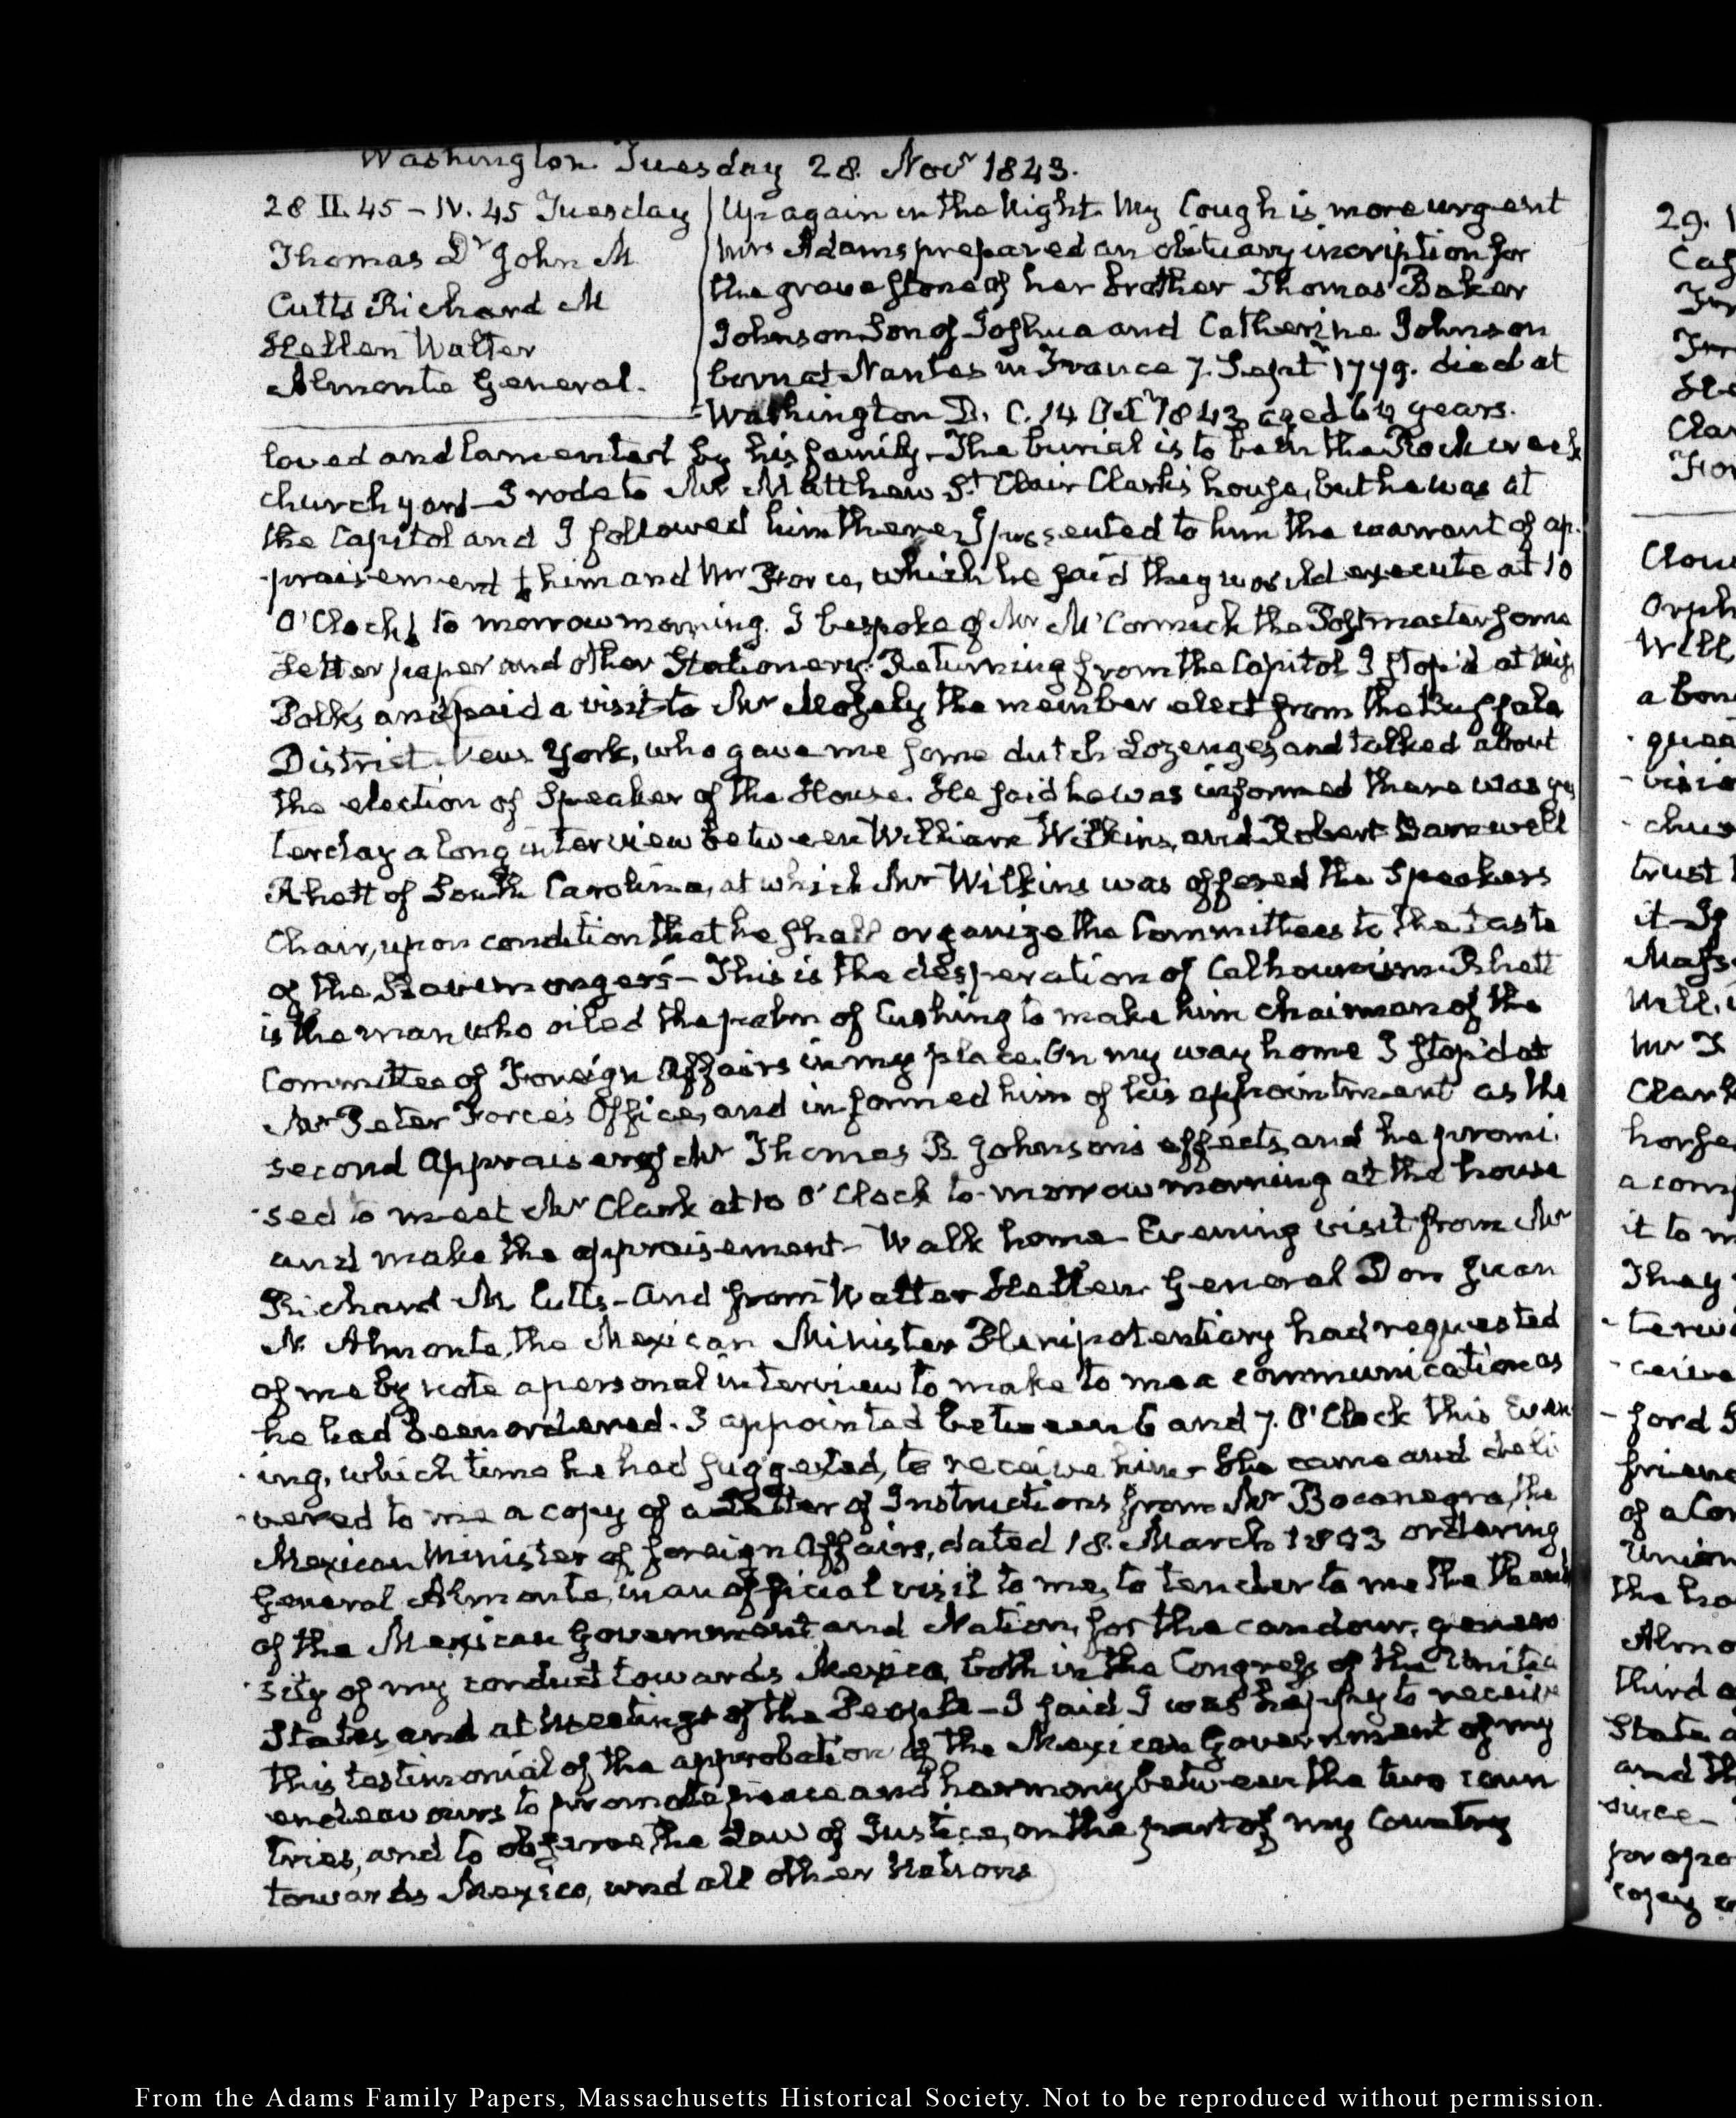 Washington Tuesday 28. Novr 1843.
28 II. 45 - IV. 45 Tuesday
Thomas Dr John M
Cutts Richard M
Hellen Walter
Almonte General.
Up again in the Night. My Cough is more urgent
Mrs Adams prepared an obituary incription for
the grave stone of her brother Thomas Baker
Johnson Son of Joshua and Catherine Johnson
born at Nantes in France 7. Sept 1779. died at
Washington D. C. 14 Octr 1843 aged 64 years.
loved and lamented by his family - The burial is to be in the Rock creek
church yard - I rode to Mr Matthew St Clair Clark's house, but he was at
the Capitol and I followed him there. I presented to him the warrant of ap-
-praisement to him and Mr Force, which he said they would execute at 10
O'Clock to morrow morning. I bespoke of Mr McCormick the Postmaster some
Letter paper and other Stationery. Returning from the Capitol I stop'd at Mrs
Polks and paid a visit to Mr Mosely the member elect from the Buffalo
District New York, who gave me some dutch Lozenges and talked about
the election of Speaker of the House. He said he was informed there was yes
terday a long interview between William Wilkins, and Robert Barnwell
Rhett of South Carolina, at which Mr Wilkins was offered the Speakers
Chair, upon condition that he shall organize the Committees to the taste
of the Slavemongers - This is the desperation of Calhounism. Rhett
is the man who oiled the palm of Cushing to make him chairman of the
Committee of Foreign Affairs in my place. On my way home I stop'd at
Mr Peter Force's Office, and informed him of his appointment as the
second Appraiser of Mr Thomas B. Johnson's effects, and he promi-
-sed to meet Mr Clark at 10 O'Clock to-morrow morning at the house
and make the appraisement - Walk home - Evening visit from Mr
Richard M Cutts - and from Walter Hellen. General Don Juan
N. Almonte, the Mexican Minister Plenipotentiary had requested
of me by note a personal interview to make to me a communication as
he had been ordered. I appointed between 6 and 7. O'Clock this Even
-ing, which time he had suggested, to receive him - He came and deli
-vered to me a copy of a Letter of Instructions from Mr Bocanegra, the
Mexican Minister of foreign Affairs, dated 18. March 1843 ordering
General Almonte, in an official visit to me, to tender to me the thanks
of the Mexican Government and Nation, for the candour, genero
-sity of my conduct towards Mexico, both in the Congress of the United
States, and at Meetings of the People - I said I was happy to receive
this testimonial of the approbation by the Mexican Government of my
endeavours to promote peace and harmony between the two coun
tries, and to observe the Law of Justice, on the part of my Country
towards Mexico, and all other Nations
29.
Clou
Orph
Will
a bon
trust
it
Mass
Mr
Clark
horse
a com
it to
They
-ford
frien
of a Con
Union
the ho
Almo
third
State
and th
since -
From the Adams Family Papers, Massachusetts Historical Society. Not to be reproduced without permission.